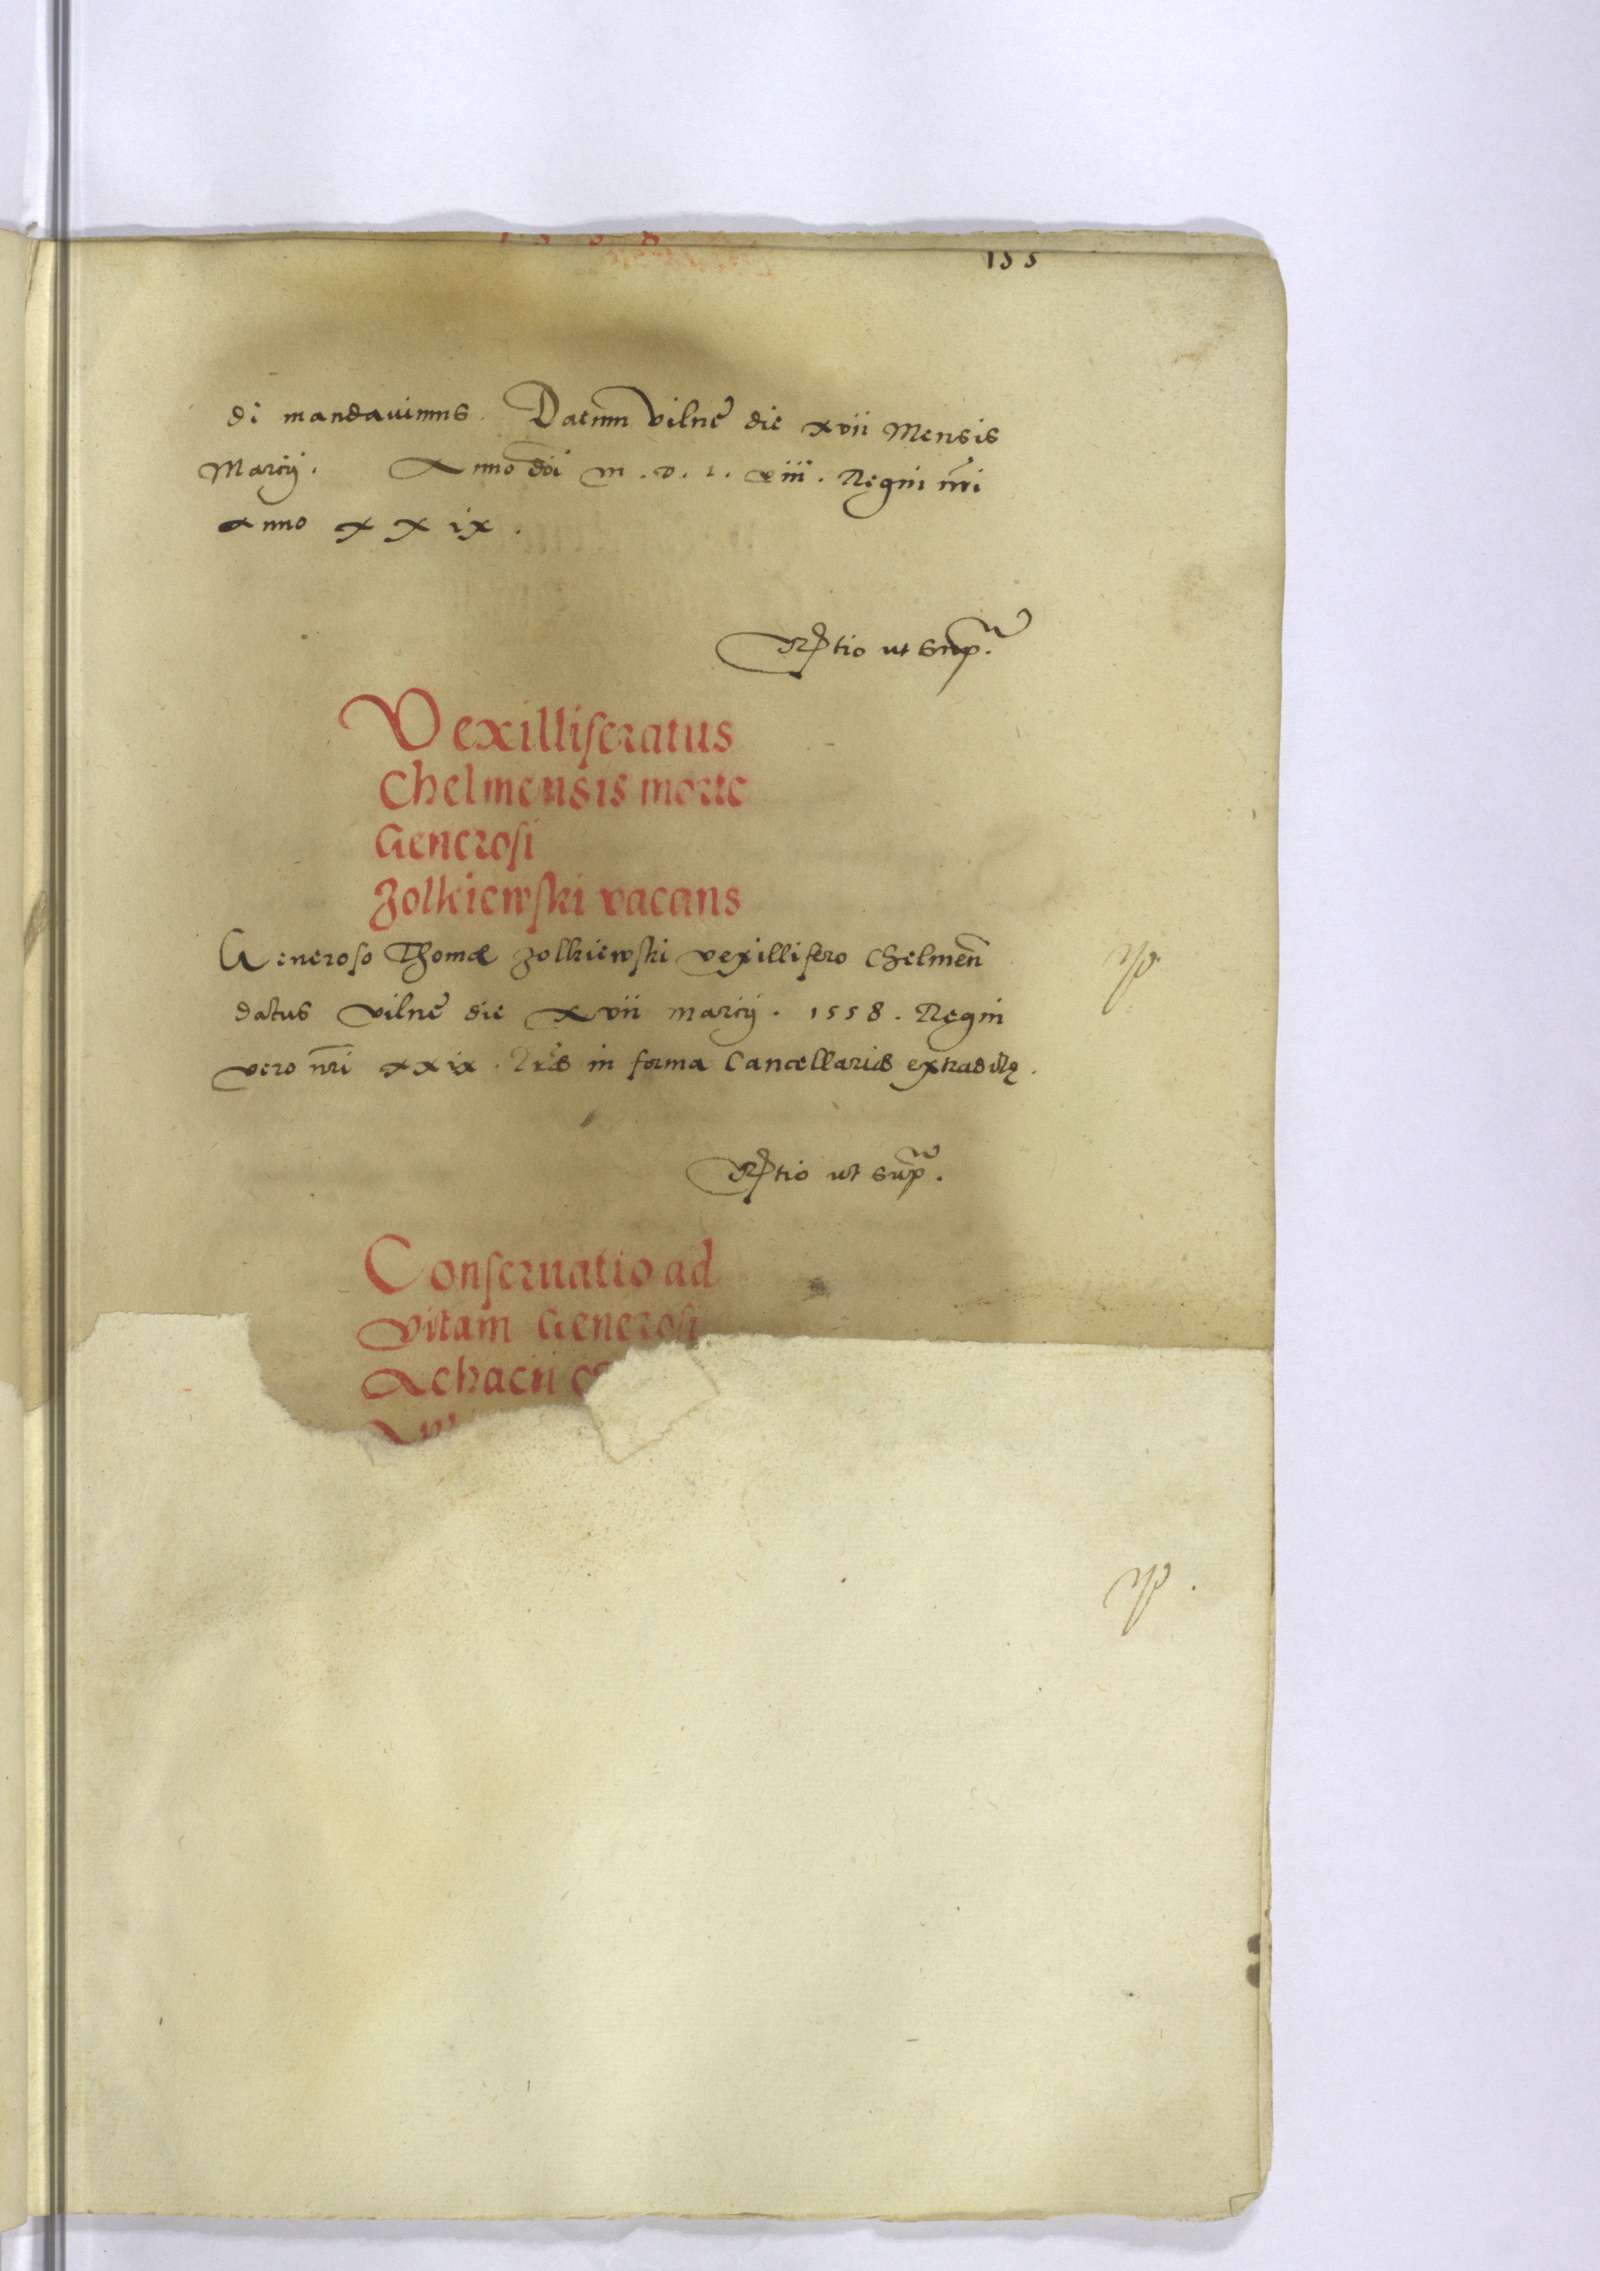 1558
155
di mandauimus. Datum Vilnę die xvii Mensis
Marcij. Anno dni M.D.L.viii. Regni nri
Anno xxix.
Rtio ut sup.
Vexilliferatus
Chelmensis morte
Generosi
Zolkiewski vacans
Generoso Thomæ Zolkiewski vexillifero Chelmen
datus Vilnę die xvii Marcij. 1558. Regni
vero nri xxix. Lræ in forma Cancellariæ extraditę.
Rtio ut sup.
Conseruatio ad
vitam Generosi
Achacii